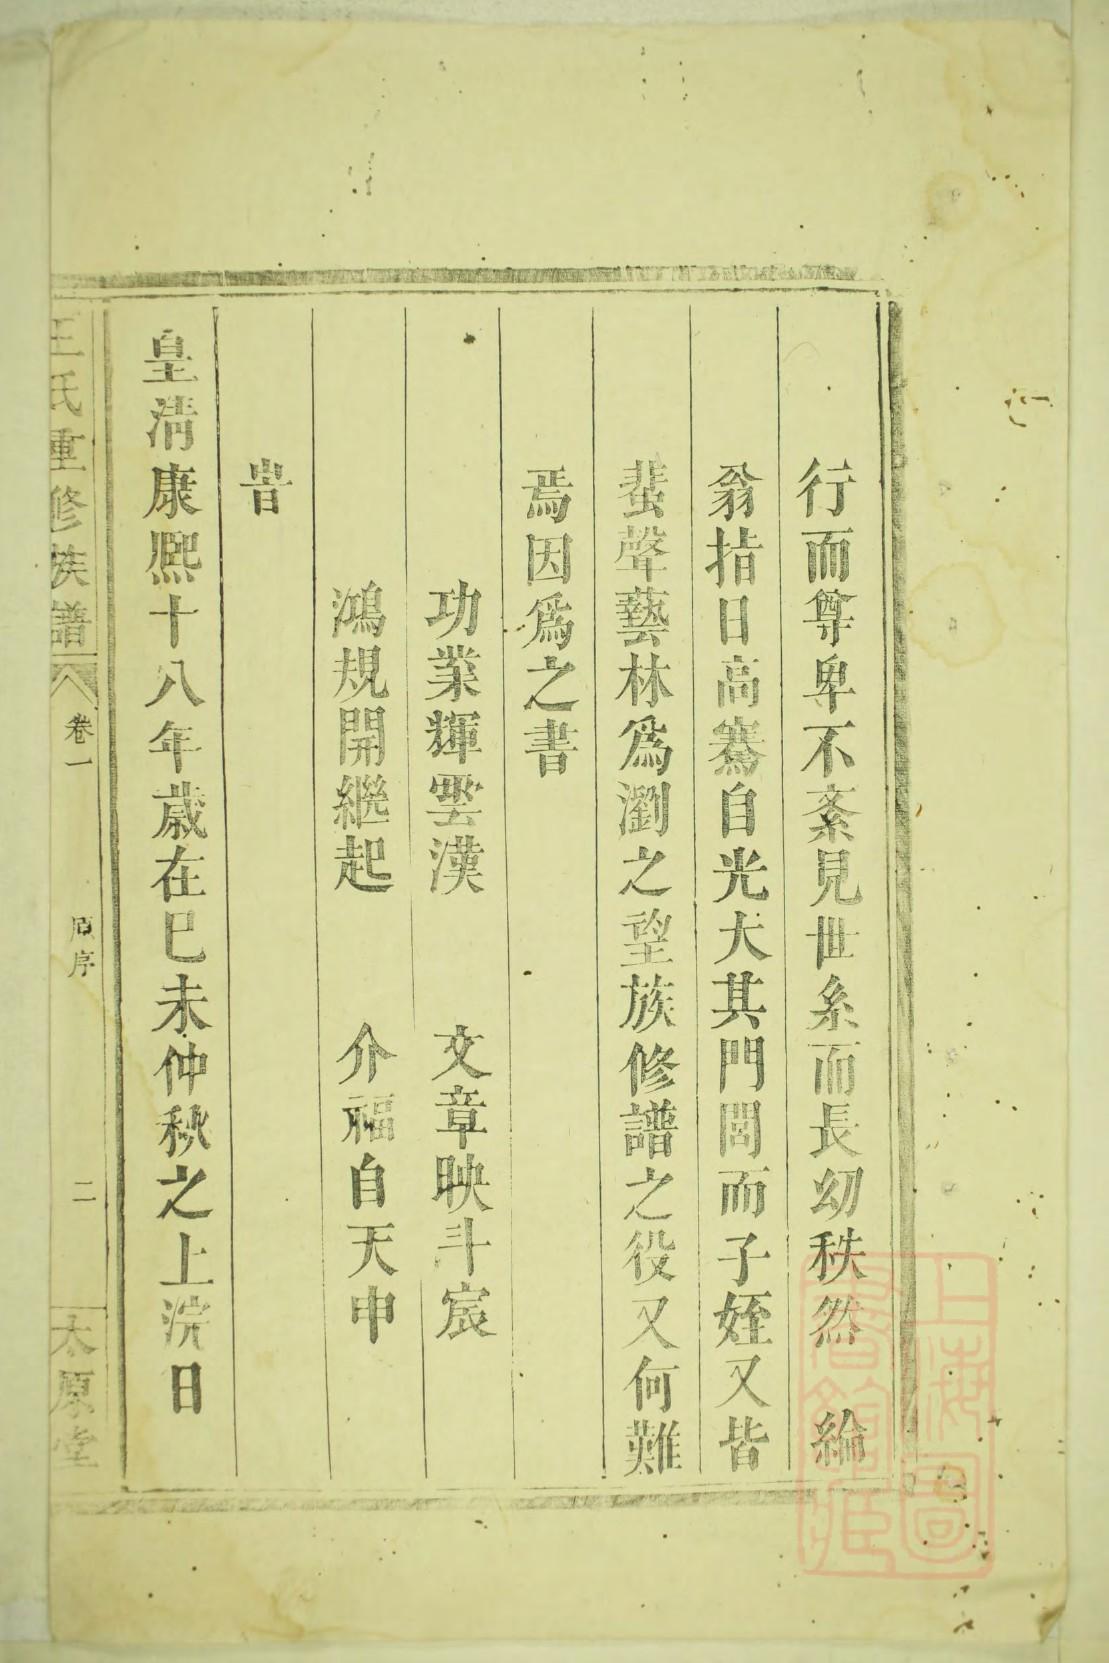 行而尊卑不紊見世系而長幼秩然　綸
翁拮日高騫自光大其門閭而子姪又皆
蜚聲藝林爲瀏之望族修譜之役又何難
焉因爲之書
功業輝雲漢　文章映斗宸
鴻規開繼起　介福自天申
旹
皇清康熙十八年歲在巳未仲秋之上浣日
王氏重修族譜　卷一　原序　二　太原堂
上海圖書館藏